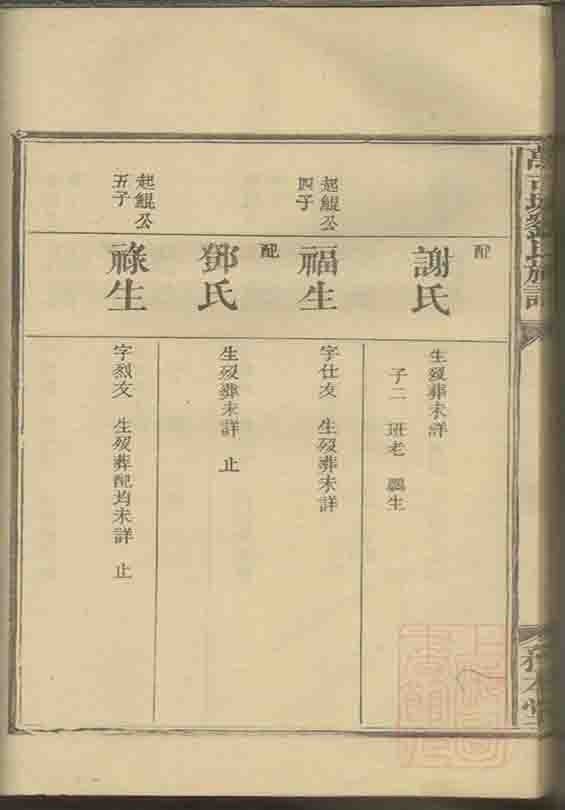 配
謝氏
生歿葬未詳
子二 班老 鵬生
起鯤公
四子
福生
字仕友 生歿葬未詳
配
鄧氏
生歿葬未詳 止
起鯤公
五子
祿生
字烈友 生歿葬配均未詳 止